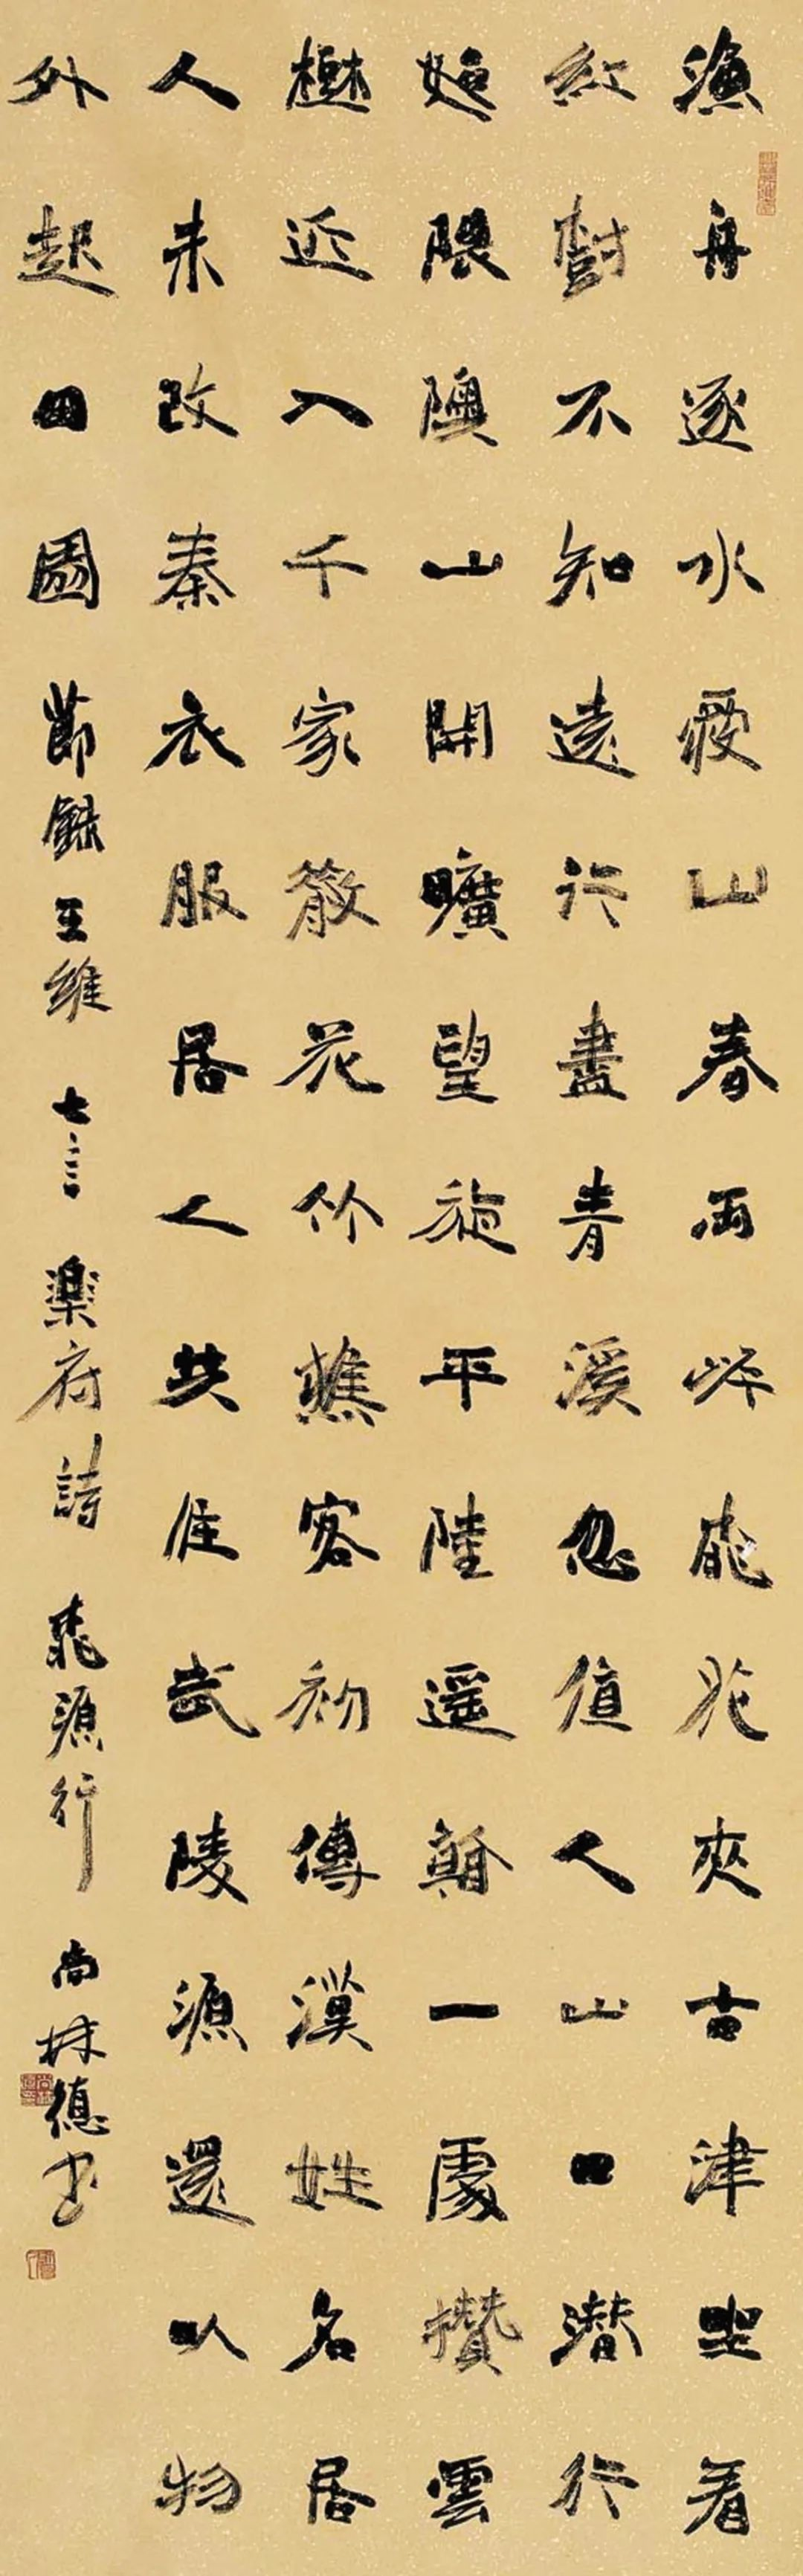 漁舟逐水愛山春兩岸桃花夾古津坐看
紅樹不知遠行盡青溪忽值人山口潛行
始隈隩山開曠望旋平陸遥看一處攢雲
樹近入千家散花竹樵客初傳漢姓名居
人未改秦衣服居人共住武陵源還从物
外起田園 節錄王維七言樂府詩桃源行 尚林德书